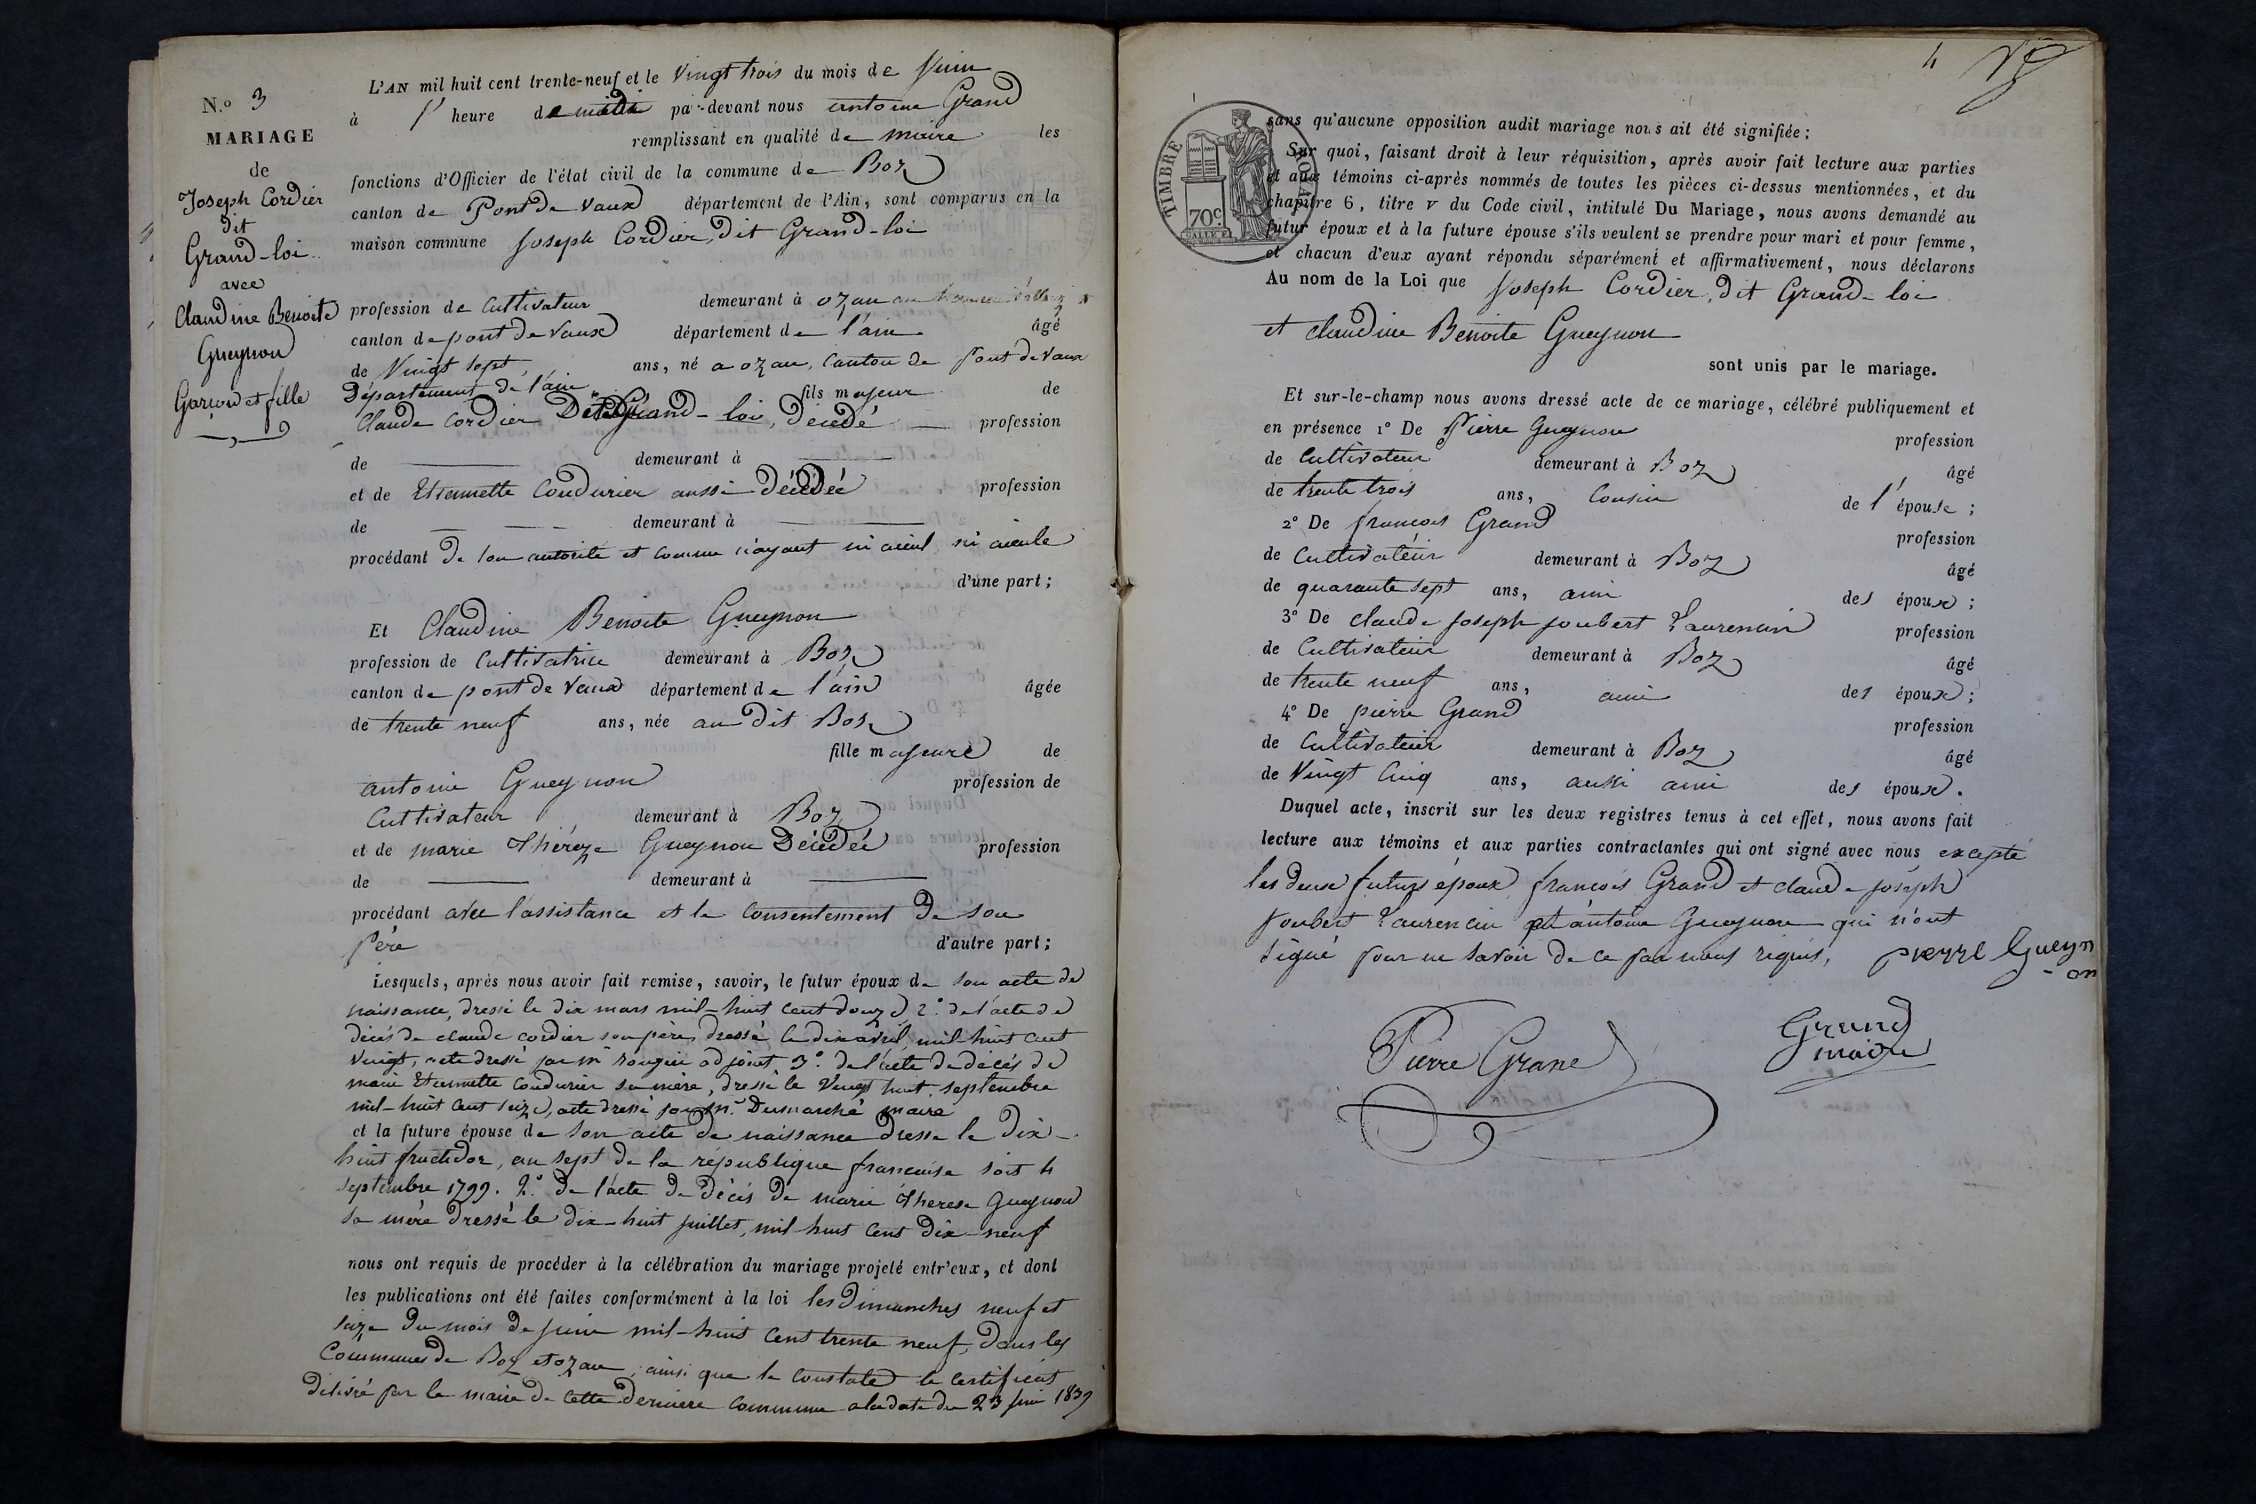 N.o 3
MARIAGE
de
Joseph Cordier
dit
Grand-loi
avec
Claudine Benoite
Gueynon
Garçon et fille
L'AN mil huit cent trente-neuf et le Vingt trois du mois de Juin
à heure de par-devant nous antoine Grand
remplissant en qualité de maire les
fonctions d'Officier de l'état civil de la commune de Boz
canton de Pont de Vaux département de l'Ain, sont comparus en la
maison commune Joseph Cordier, dit Grand-loi
profession de Cultivateur demeurant à ozan
canton de pont de Vaux département de l'ain âgé
de Vingt sept ans, né a ozan, canton de Pont de Vaux
Département de l'ain fils majeur de
Claude Cordier Grand-loi, Décédé profession
de demeurant à
et de Etiennette Condurier aussi décédée profession
de demeurant à
procédant de son autorité et comme n'ayant ni aieul ni aieule
d'une part;
Et Claudine Benoite Gueynon
profession de Cultivatrice demeurant à Boz
canton de pont de Vaux département de l'ain âgée
de trente neuf ans, née au dit Boz
fille majeure de
antoine Gueynon profession de
Cultivateur demeurant à Boz
et de marie Thérèze Gueynon Décédée profession
de demeurant à
procédant avec l'assistance et le consentement de son
Père d'autre part;
Lesquels, après nous avoir fait remise, savoir, le futur époux de son acte de
naissance, dressé le dix mars mil-huit cent douze 2.° de l'acte de
décès de claude cordier son père, dressé le dix avril, mil-huit cent
vingt, acte dressé par mr adjoint 3.° de l'acte de décès de
marie Etiennette Condurier sa mère, dressé le Vingt huit septembre
mil-huit cent seize, acte dressé par mr. Dumarché maire
et la future épouse de son acte de naissance dressé le dix-
huit fructidor, an sept de la république francaise soit 4
septembre 1799. 2.° de l'acte de décès de marie Therese Gueynon
sa mère dressé le dix-huit juillet, mil-huit cent dix-neuf
nous ont requis de procéder à la célébration du mariage projeté entr'eux, et dont
les publications ont été faites conformément à la loi les Dimanches neuf et
seize du mois de Juin mil-huit cent trente neuf, dans les
Communes de Boz et ozan, ainsi que le constate le certificat
délivré par le maire de cette dernière commune a la date du 23 juin 1839
4
TIMBRE ROYAL
70c
sans qu'aucune opposition audit mariage nous ait été signifiée;
Sur quoi, faisant droit à leur réquisition, après avoir fait lecture aux parties
et aux témoins ci-après nommés de toutes les pièces ci-dessus mentionnées, et du
chapitre 6, titre v du Code civil, intitulé Du Mariage, nous avons demandé au
futur époux et à la future épouse s'ils veulent se prendre pour mari et pour femme,
et chacun d'eux ayant répondu séparément et affirmativement, nous déclarons
Au nom de la Loi que Joseph Cordier, dit Grand-loi
et claudine Benoite Gueynon
sont unis par le mariage.
Et sur-le-champ nous avons dressé acte de ce mariage, célébré publiquement et
en présence 1° De Pierre Gueynon profession
de Cultivateur demeurant à Boz âgé
de trente trois ans, Cousin de l'épouse;
2° De francois Grand profession
de Cultivateur demeurant à Boz âgé
de quarante sept ans, ami des époux;
3° De claude joseph joubert Laurencin profession
de Cultivateur demeurant à Boz âgé
de trente neuf ans, ami des époux;
4° De pierre Grand profession
de Cultivateur demeurant à Boz âgé
de Vingt Cinq ans, aussi ami des époux.
Duquel acte, inscrit sur les deux registres tenus à cet effet, nous avons fait
lecture aux témoins et aux parties contractantes qui ont signé avec nous excepté
les deux futurs époux francois Grand et claude joseph
Joubert Laurencin et antoine Gueynon qui n'ont
signé pour ne savoir de ce par nous requis. pierre Gueyn
-on
Pierre Grand
Grand
maire